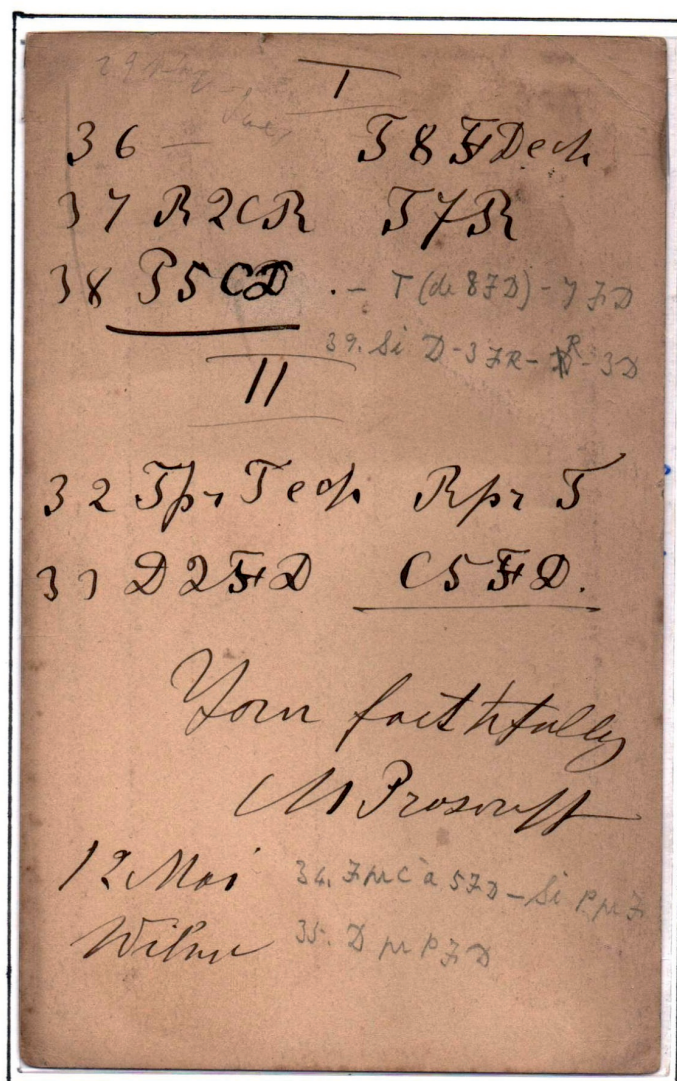 I
36 — T8FD ech
37 R2CR T7R
38 P5CD . – T (de 8FD) – 7FD
39. Si D-3FR – R-3D
II
32 Tpr T ech Rpr T
33 D2FD C5FD.
Your faithfully
M Prosoroff
12 Mai
34. F pr C à 5FD – Si P pr F
Wilna
35. D pr P FD